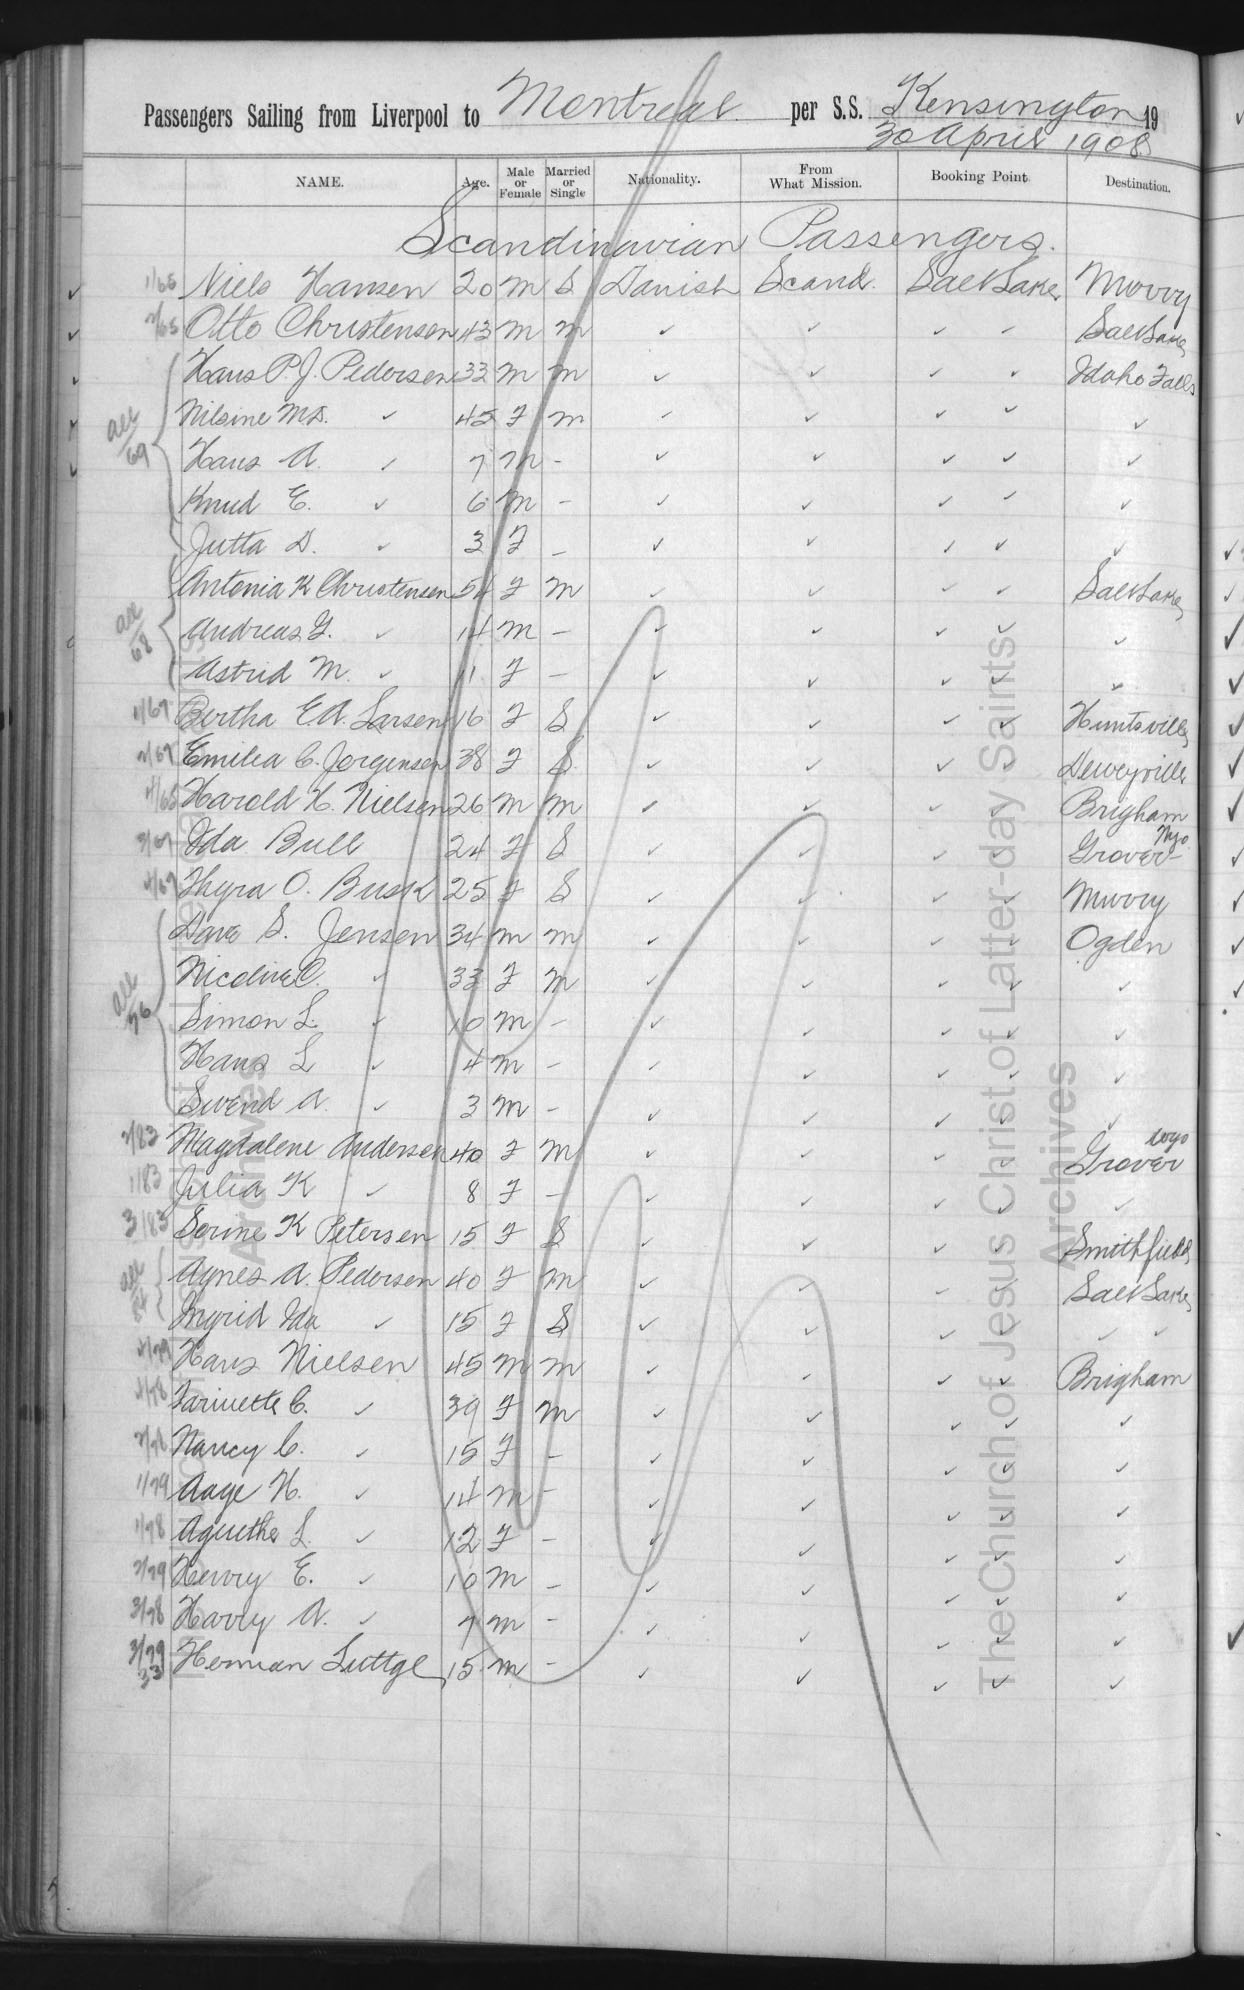 Passengers Sailing from Liverpool to Montreal per S.S. Kensington 19
30 April 1908
NAME. Age. Male or Female Married or Single Nationality. From What Mission. Booking Point Destination.
Scandinavian Passengers.
1/65 Niels Hansen 20 M S Danish Scand. Salt Lake Murry
2/65 Otto Christensen 43 M M ✓ ✓ ✓ ✓ Salt Lake
Hans P. J. Pedersen 33 M M ✓ ✓ ✓ ✓ Idaho Falls
all 69 Nilsine M.D. ✓ 45 F M ✓ ✓ ✓ ✓ ✓
Hans A. ✓ 7 M - ✓ ✓ ✓ ✓ ✓
Knud E. ✓ 6 M - ✓ ✓ ✓ ✓ ✓
Jutta D. ✓ 3 F - ✓ ✓ ✓ ✓ ✓
Antonia K Christensen 54 F M ✓ ✓ ✓ ✓ Salt Lake
all 68 Andreas Y. ✓ 14 M - ✓ ✓ ✓ ✓ ✓
Astrid M. ✓ 11 F - ✓ ✓ ✓ ✓ ✓
1/67 Bertha E.A. Larsen 16 F S ✓ ✓ ✓ ✓ Huntsville
2/67 Emilia C. Jorgensen 38 F S ✓ ✓ ✓ ✓ Deweyville
4/65 Harold H. Nielsen 26 M M ✓ ✓ ✓ ✓ Brigham
3/67 Ida Bull 24 F S ✓ ✓ ✓ ✓ Grover Wyo
4/67 Thyra O. Busk 25 F S ✓ ✓ ✓ ✓ Murry
S. Jensen 34 M M ✓ ✓ ✓ ✓ Ogden
all 76 Nicoline C. ✓ 33 F M ✓ ✓ ✓ ✓ ✓
Simon L. ✓ 10 M - ✓ ✓ ✓ ✓ ✓
Hans L ✓ 4 M - ✓ ✓ ✓ ✓ ✓
Svend A. ✓ 3 M - ✓ ✓ ✓ ✓ ✓
2/83 Magdalene Andersen 40 F M ✓ ✓ ✓ ✓ Grover Wyo
1/83 Julia K ✓ 8 F - ✓ ✓ ✓ ✓ ✓
3/83 Serine K Petersen 15 F S ✓ ✓ ✓ ✓ Smithfield
all 84 Agnes A. Pedersen 40 F M ✓ ✓ ✓ ✓ Salt Lake
Ingrid Ida ✓ 15 F S ✓ ✓ ✓ ✓ ✓ ✓
4/79 Hans Nielsen 45 M M ✓ ✓ ✓ ✓ Brigham
4/78 C. ✓ 39 F M ✓ ✓ ✓ ✓ ✓
2/78 Nancy C. ✓ 15 F - ✓ ✓ ✓ ✓ ✓
1/79 Aage H. ✓ 14 M - ✓ ✓ ✓ ✓ ✓
1/78 Agnethe L. ✓ 12 F - ✓ ✓ ✓ ✓ ✓
2/79 Henry E. ✓ 10 M - ✓ ✓ ✓ ✓ ✓
3/78 Harry A. ✓ 7 M - ✓ ✓ ✓ ✓ ✓
3/79 33 Herman Luttge 15 M - ✓ ✓ ✓ ✓ ✓
The Church of Jesus Christ of Latter-day Saints
Archives